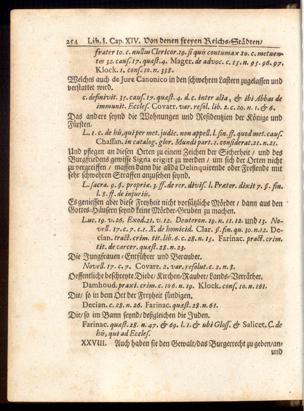 254 Lib. I. Cap. XIV. Von denen freyen Reichs-Städten/
frater 10. c. nullum Clericor. 19. si quis contumax 20. c. metuen-
ter 32. caus. 17. quæst. 4. Mager. de advoc. c. 15. n. 95. 96. 97.
Klock. 1. cons. 10. n. 338.
Welches auch de Jure Canonico in den schwehren Lastern zugelassen und
verstattet wird.
c. definivit. 35. caus. 17. quæst. 4. d. c. inter alia, & ibi Abbas de
immunit. Eccles. Covarr. var. resol. lib. 2. c. 20. n. 1. & 6.
Das andere seynd die Wohnungen und Residenzien der Könige und
Fürsten.
L. 1. c. de his, qui per met. judic. non appell. l. fin. ff. quod met. caus.
Chassan. in catalog. glor. Mundi part. 1. considerat. 21. n. 21.
Und pflegen an diesen Orten zu einem Zeichen der Sicherheit / und des
Burgfriedens gewisse Signa erigirt zu werden / um sich der Orten nicht
zu vergreiffen / massen dann die allda Delinquirende oder Fressende mit
sehr schwehren Straffen anzusehen seynd.
L. sacra. 9. §. proprie. 3. ff. de rer. divis. l. Prator. dixit 7. §. fin.
l. 5. ff. de injuriis.
Es geniessen aber diese Freyheit nicht vorsätzliche Mörder / dann aus den
Gottes-Häusern seynd keine Mörder-Gruben zu machen.
Luc. 19. v. 26. Exod. 21. v. 12. Deuteron. 19. n. 11. 12. und 13. No-
vell. 17. c. 7. c. 1. X. de homicid. Clar. §. fin. qu. 30. n. 12. De-
cian. tract. crim. tit. lib. 6. c. 28. n. 13. Farinac. pract. crim.
tit. de carcer. quæst. 28. n. 23.
Die Jungfrauen-Entführer und Berauber.
Novell. 17. c. 7. Covarr. 2. var. resolut. c. 2. n. 8.
Oeffentliche beschreyte Diebe / Kirchen-Rauber / Lands-Verräther.
Damhoud. praxi crim. c. 106. n. 19. Klock. cons. 10. n. 161.
Die / so in dem Ort der Freyheit sündigen.
Decian. c. 28. n. 26. Farinac. quæst. 28. n. 61.
Die / so im Bann seynd / deßgleichen die Juden.
Farinac. quæst. 28. n. 47. & 69. l. 1. & ubi Gloss. & Salicet. C. de
his, qui ad Eccles.
XXVIII. Auch haben sie den Gewalt / das Burgerrecht zu geben / an-
und